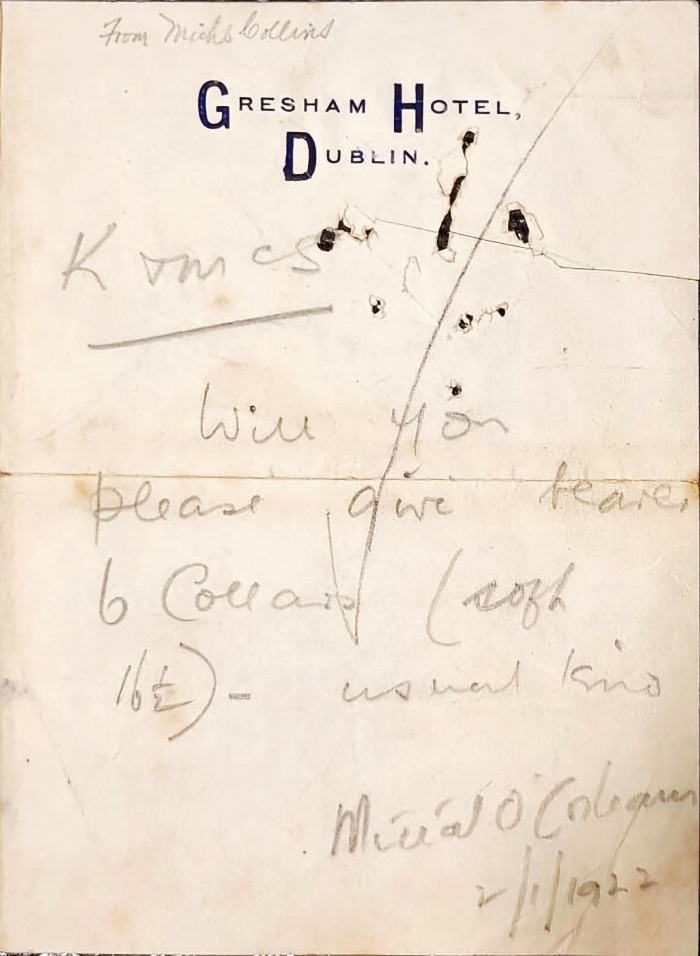 From Michl Collins
GRESHAM HOTEL,
DUBLIN.
K & McS
Will you
please give bearer
6 Collars (soft
16½) – usual kind
Mícéál Ó Coileáin
2/1/1922